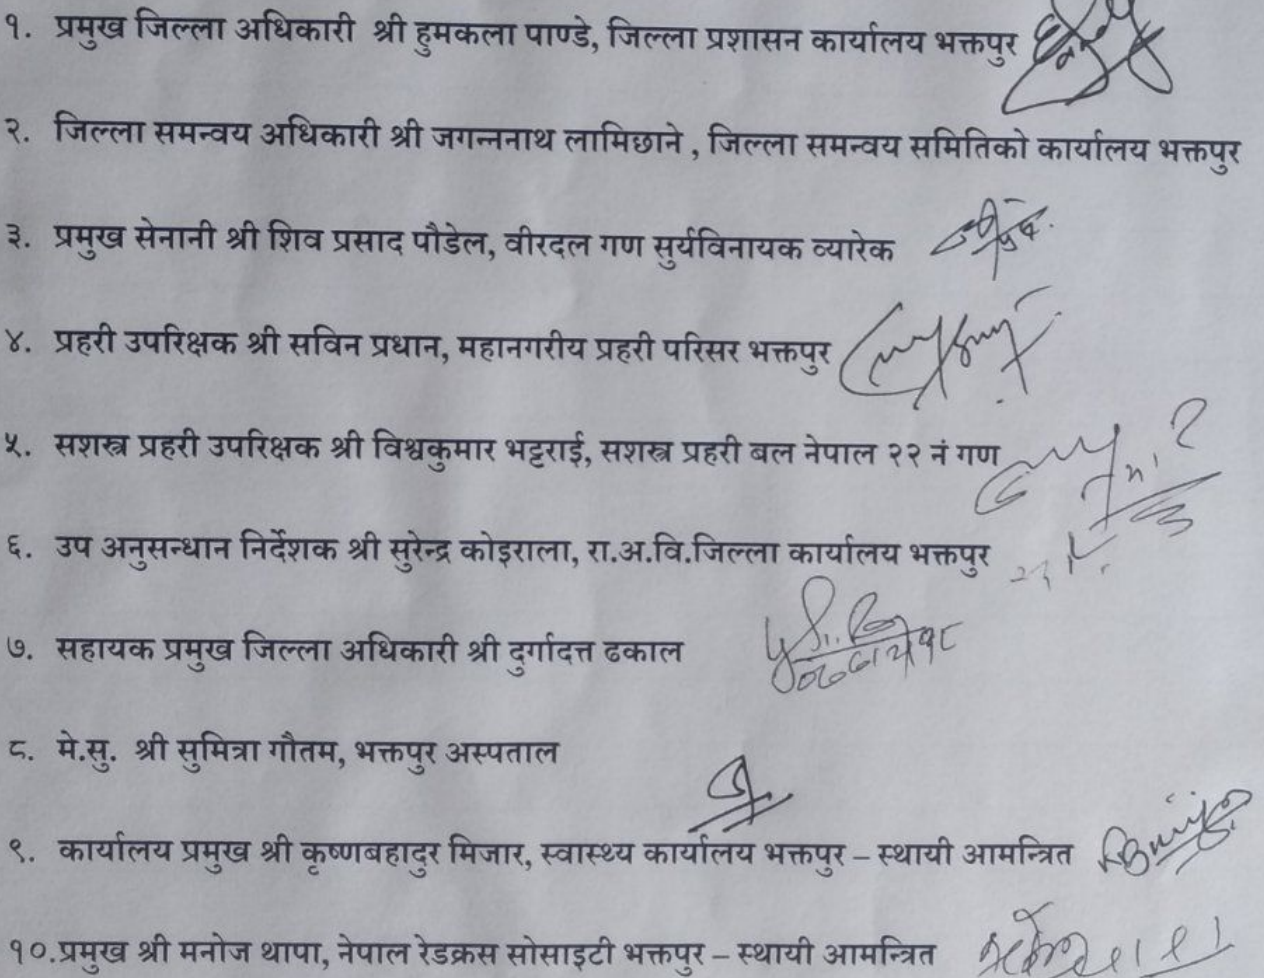 १. प्रमुख जिल्ला अधिकारी श्री हुमकला पाण्डे, जिल्ला प्रशासन कार्यालय भक्तपुर
२. जिल्ला समन्वय अधिकारी श्री जगन्ननाथ लामिछाने , जिल्ला समन्वय समितिको कार्यालय भक्तपुर
३. प्रमुख सेनानी श्री शिव प्रसाद पौडेल, वीरदल गण सुर्यविनायक ब्यारेक
४. प्रहरी उपरिक्षक श्री सविन प्रधान, महानगरीय प्रहरी परिसर भक्तपुर
५. सशस्त्र प्रहरी उपरिक्षक श्री विश्वकुमार भट्टराई, सशस्त्र प्रहरी बल नेपाल २२ नं गण
६. उप अनुसन्धान निर्देशक श्री सुरेन्द्र कोइराला, रा.अ.वि.जिल्ला कार्यालय भक्तपुर
७. सहायक प्रमुख जिल्ला अधिकारी श्री दुर्गादत्त ढकाल
८. मे.सु. श्री सुमित्रा गौतम, भक्तपुर अस्पताल
९. कार्यालय प्रमुख श्री कृष्णबहादुर मिजार, स्वास्थ्य कार्यालय भक्तपुर – स्थायी आमन्त्रित
१०.प्रमुख श्री मनोज थापा, नेपाल रेडक्रस सोसाइटी भक्तपुर – स्थायी आमन्त्रित